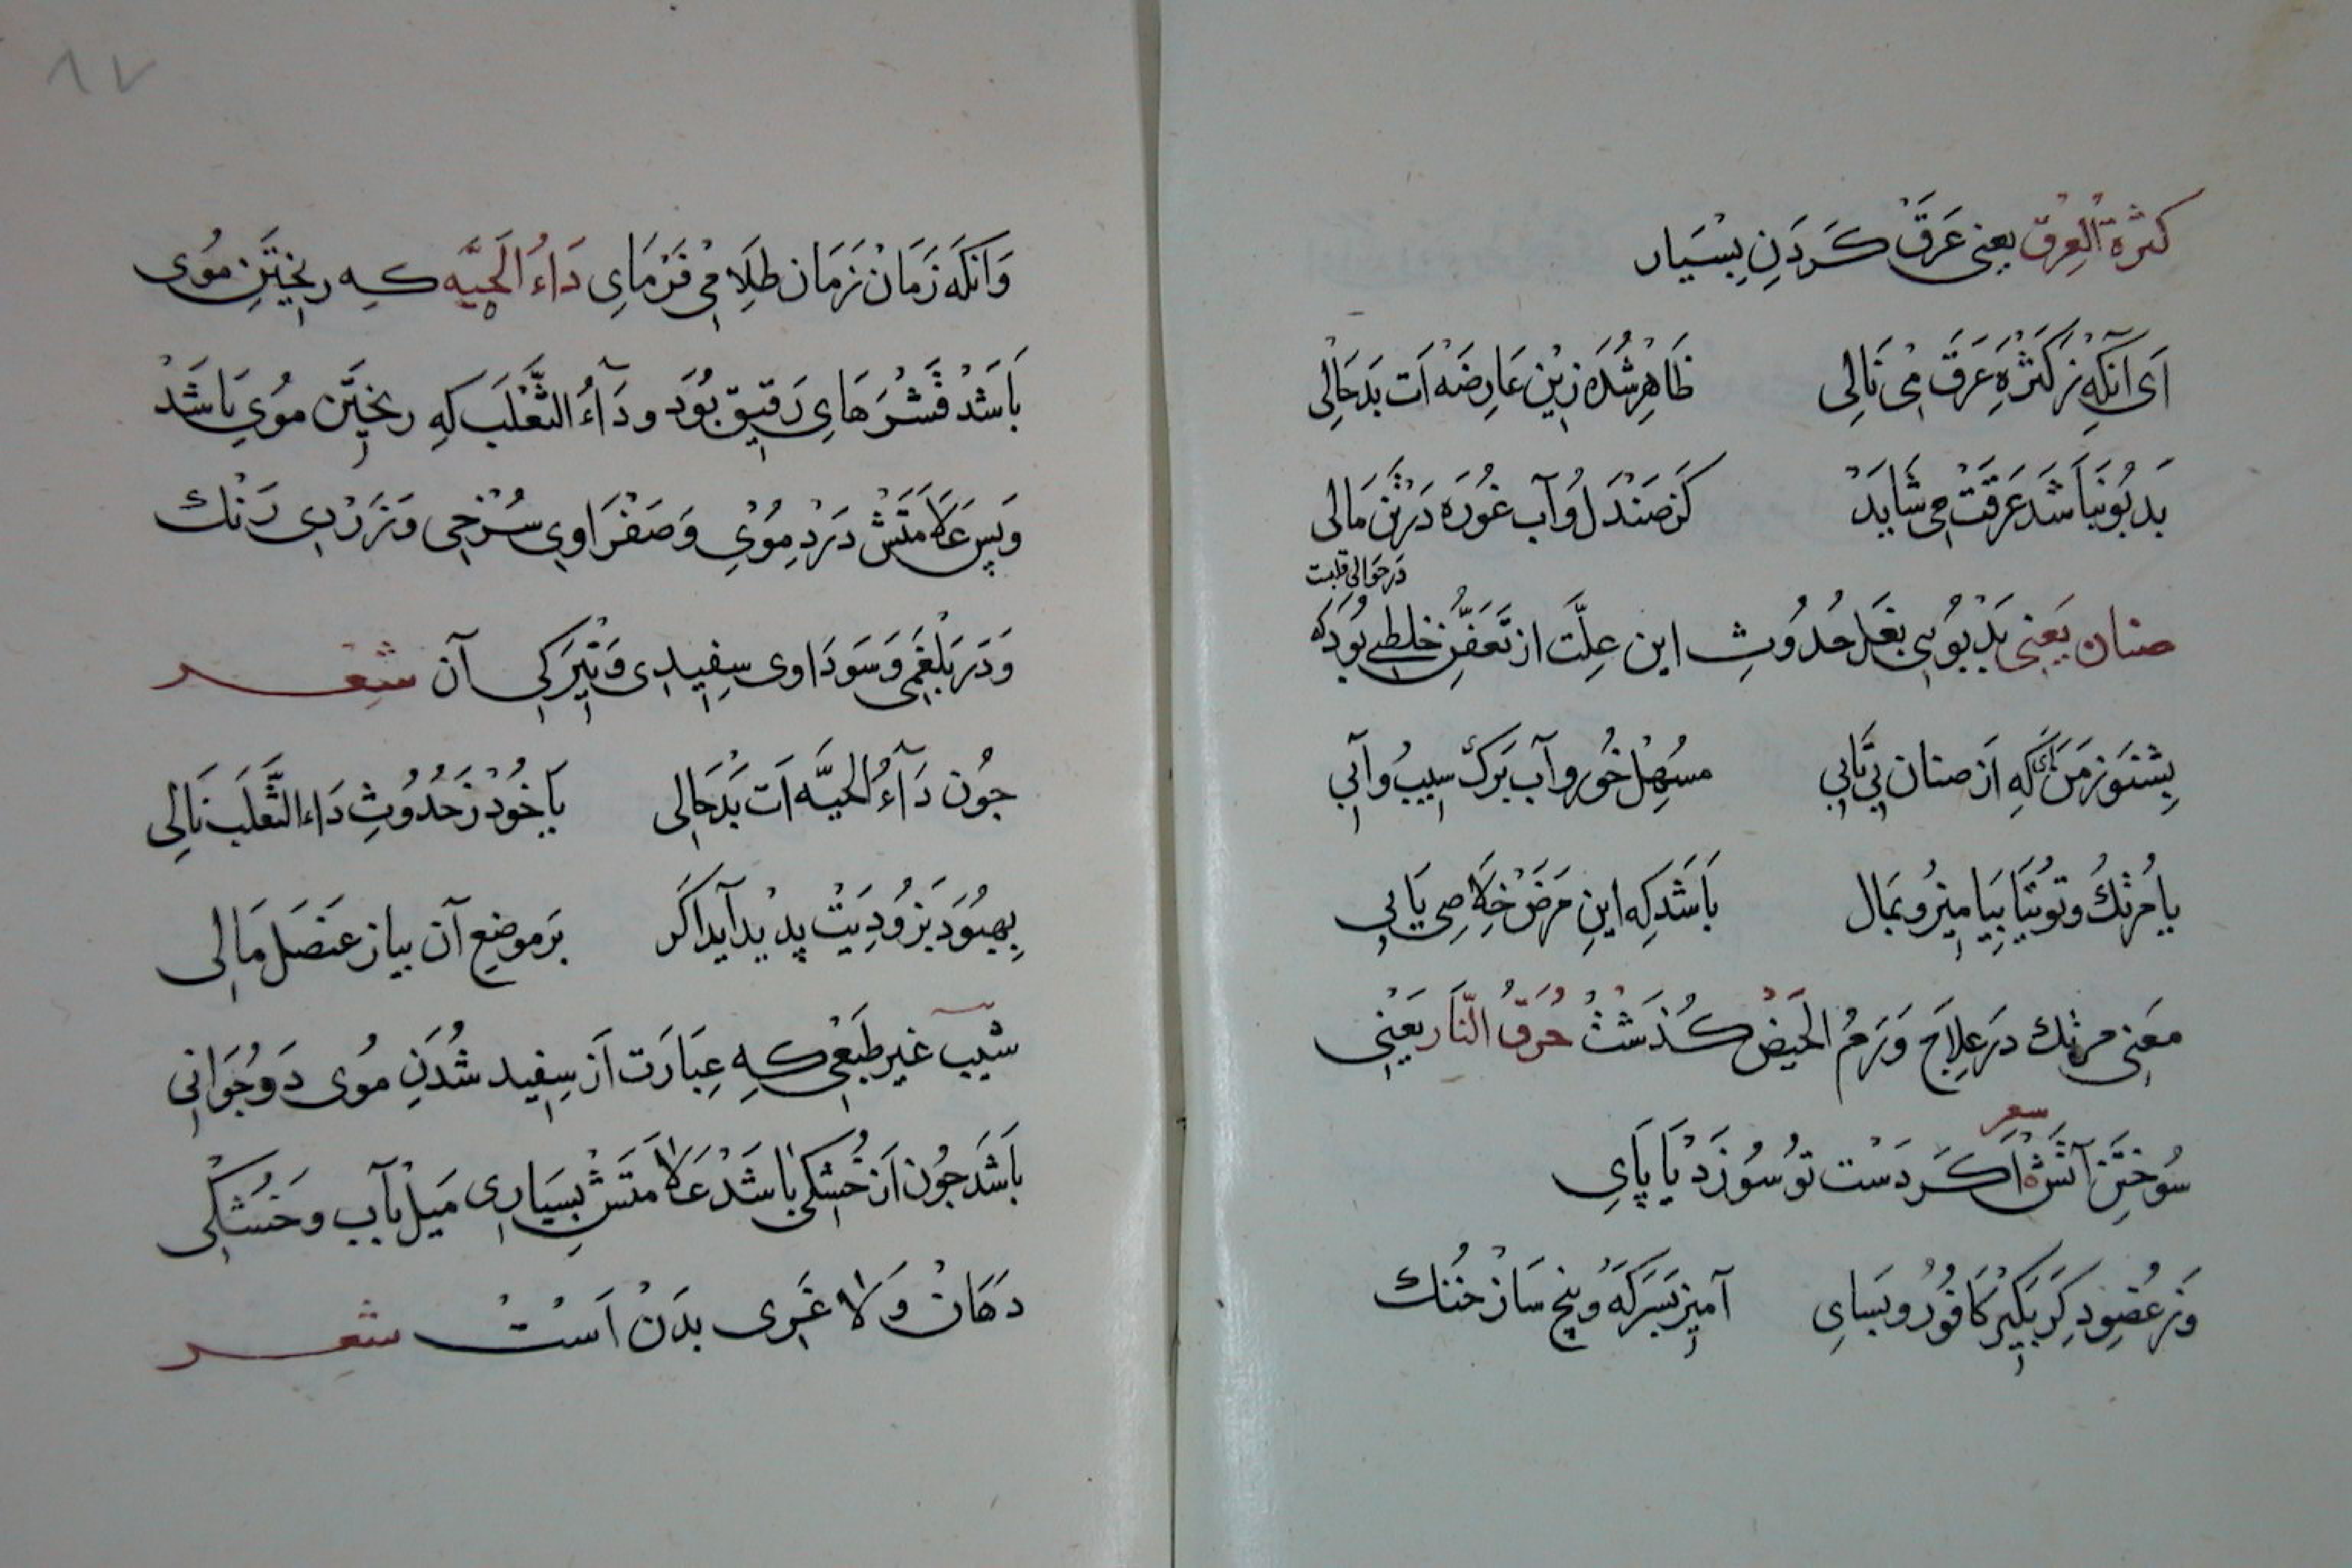 كثرة العرق یعنی عرق کردن بسیار
ای آنکه ز کثره عرق می نالی ظاهر شده زین عارضه ات بدحالی
بد بو نباشد عرقت می شاید کز صندل و آب غوره در تن مالی
در حوالی قلبت
صنان یعنی بدبویی بغل حدوث این علت از تعفن خلطی بود که
بشنو ز من ای که از صنان بی تابی مسهل خور و آب برک سیب و آبی
با مرتک و توتیا بیامیز و بمال باشد که این مرض خلاصی یابی
معنی مرتک در علاج ورم الحیض کذشت حرق النار یعنی
شعر
سوختن آتش اکر دست تو سوزد یا پای
وز عضو دکر بکیر کافور و بسای آمیز بسرکه و بیخ ساز خنک
۸۷
وانکه زمان زمان طلا می فرمای داء الحیه که ریختن موی
باشد قشرهای رقیق بود و دآء الثعلب که ریختن موی باشد
وپس علامتش در دموی و صفراوی سرخی و زردی رنک
و در بلغمی و سوداوی سفیدی و تیرکی آن شعر
جون دآء الحیه ات بدحالی یا خود ز حدوث داء الثعلب نالی
بهبود بزودیت پدید آید اکر بر موضع آن بیاز عنصل مالی
شیب غیر طبعی که عبارت از سفید شدن موی در جوانی
باشد جون از خشکی باشد علامتش بسیاری میل بآب و خشکی
دهان و لاغری بدن است شعر